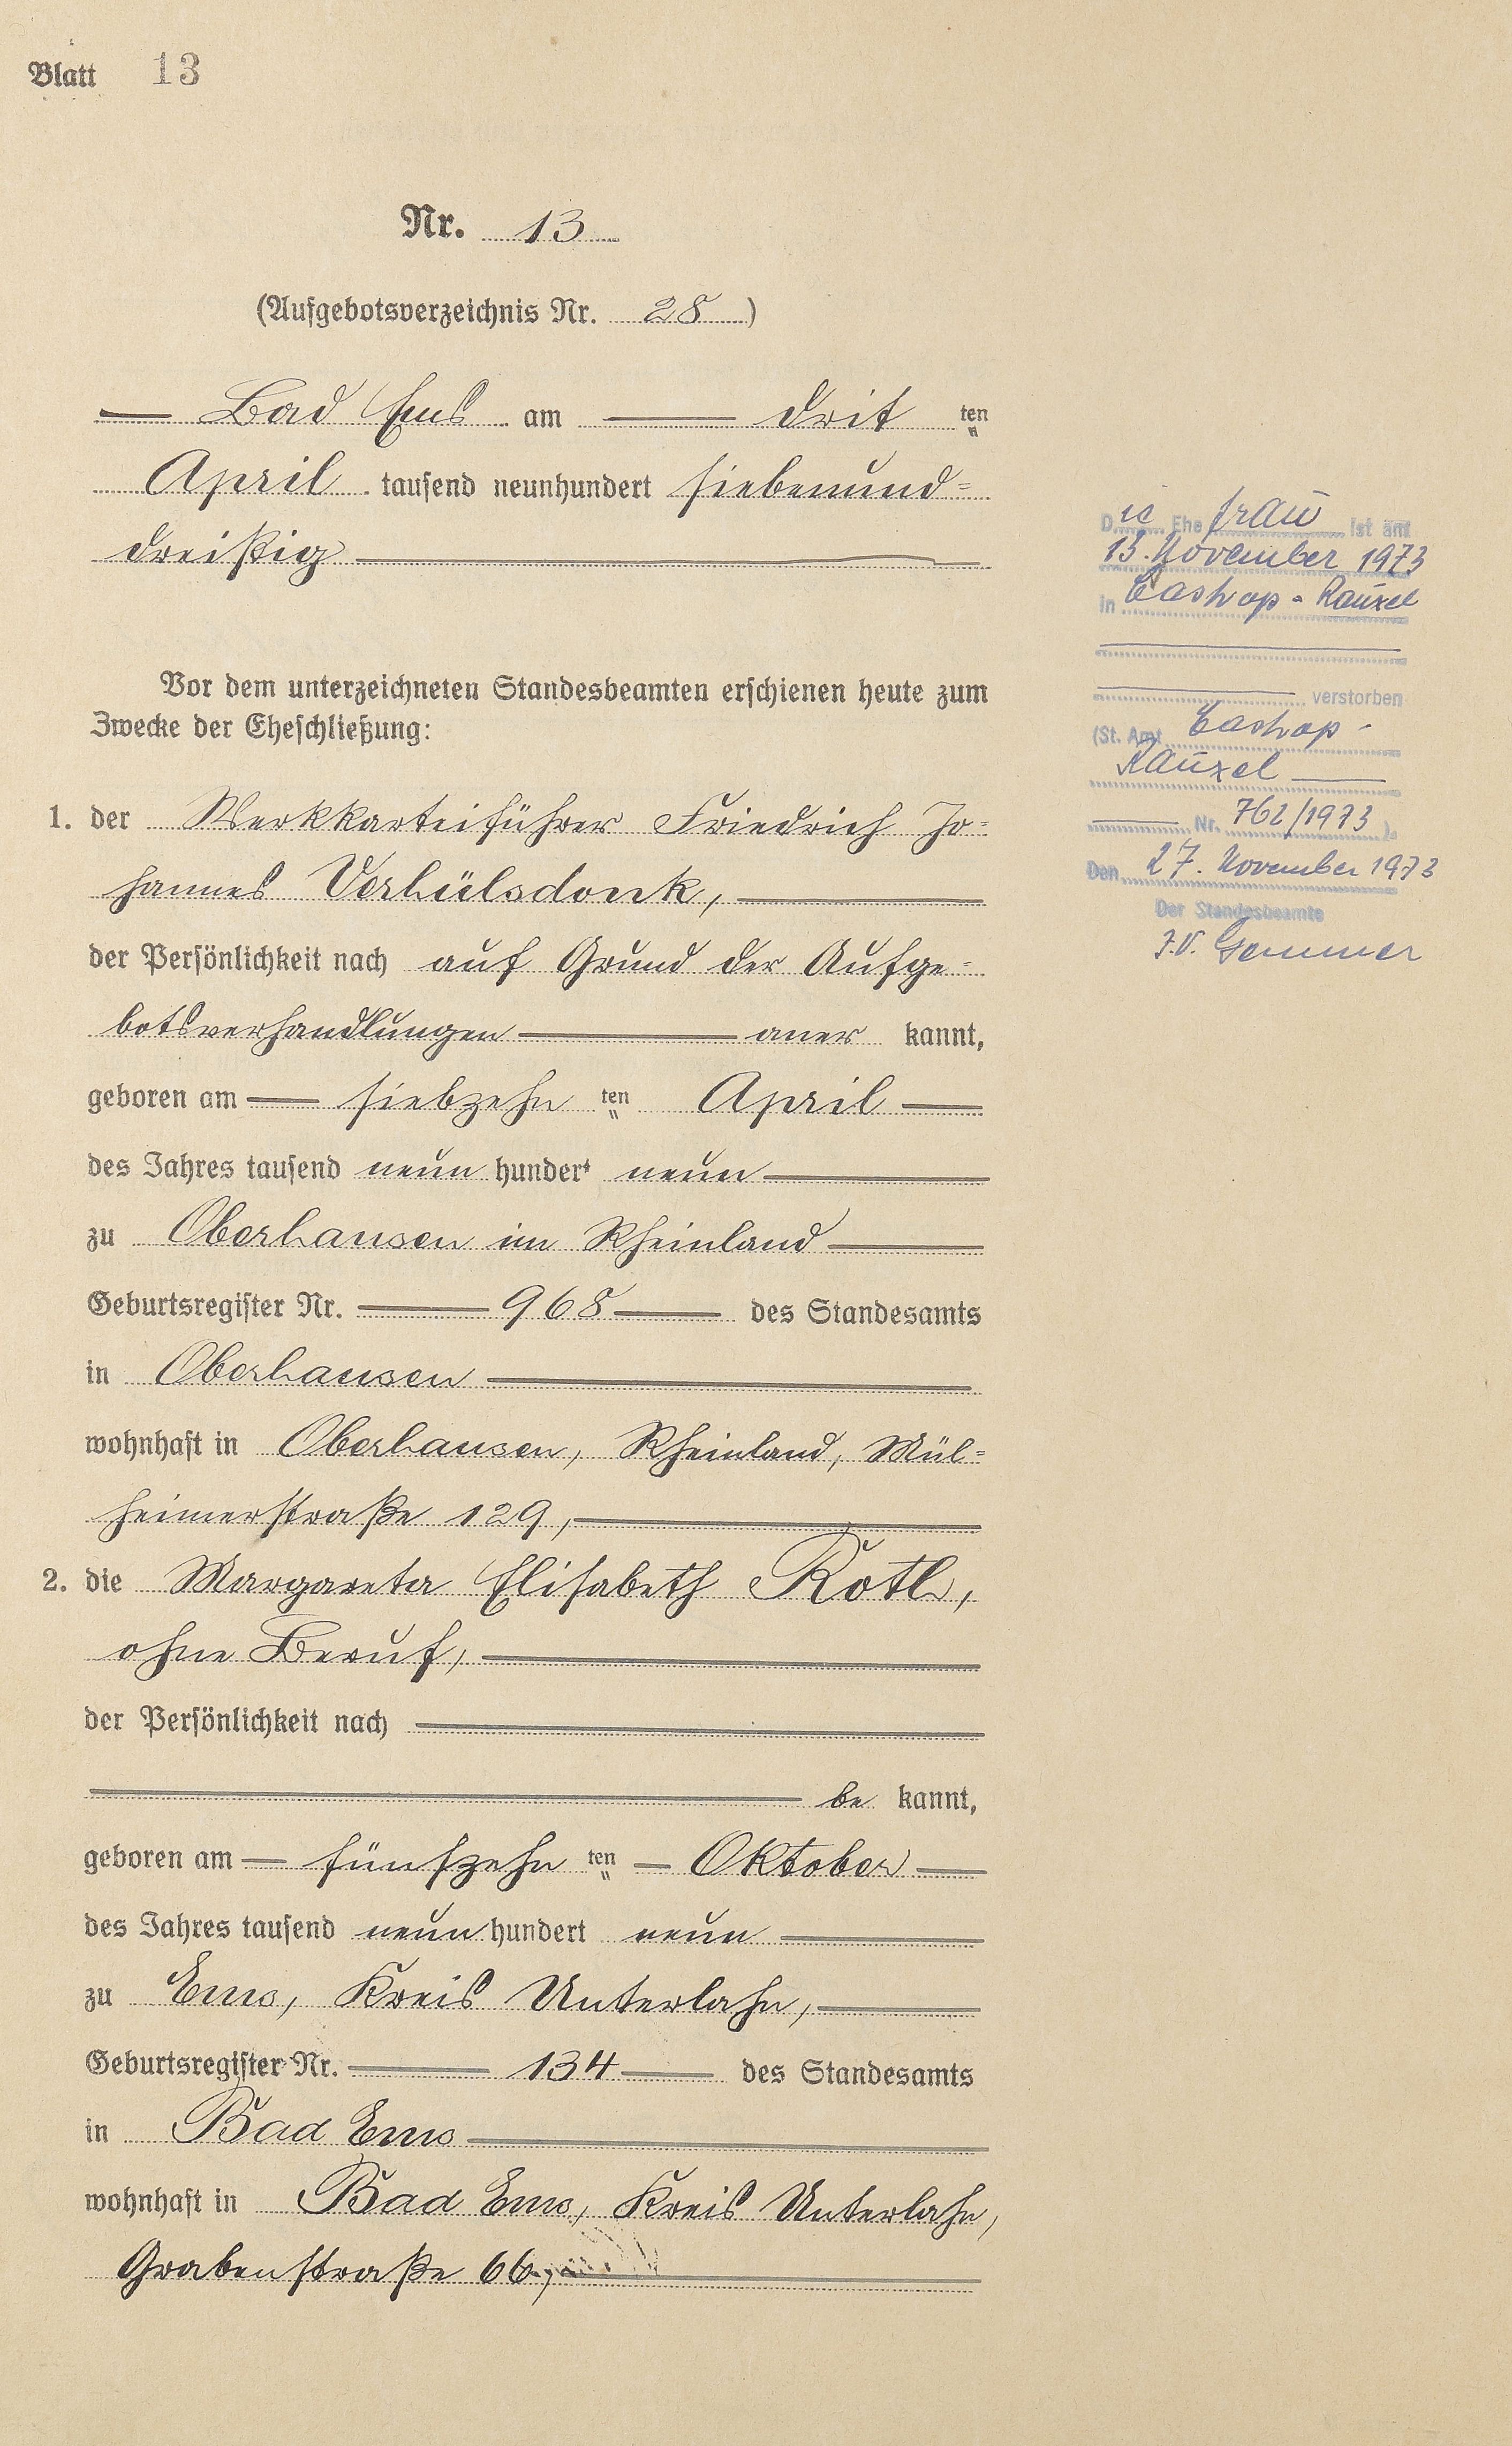 Blatt 13
Nr. 13
(Aufgebotsverzeichnis Nr. 28)
Bad Ems am drit ten
April tausend neunhundert siebenund=
dreißig
Vor dem unterzeichneten Standesbeamten erschienen heute zum
Zwecke der Eheschließung:
1. der Werkkarteiführer Friedrich Jo=
hannes Verhülsdonk,
der Persönlichkeit nach auf Grund der Aufge=
botsverhandlungen aner kannt,
geboren am siebzehn ten April
des Jahres tausend neun hundert neun
zu Oberhausen im Rheinland
Geburtsregister Nr. 968 des Standesamts
in Oberhausen
wohnhaft in Oberhausen, Rheinland, Mül=
heimerstraße 129,
2. die Margareta Elisabeth Roth,
ohne Beruf,
der Persönlichkeit nach
be kannt,
geboren am fünfzehn ten Oktober
des Jahres tausend neun hundert neun
zu Ems, Kreis Unterlahn,
Geburtsregister Nr. 134 des Standesamts
in Bad Ems
wohnhaft in Bad Ems, Kreis Unterlahn,
Grabenstraße 66,
Die Ehe frau ist am
13. November 1973
in Castrop-Rauxel
verstorben
(St. Amt Castrop-
Rauxel
Nr. 762/1973).
Den 27. November 1973
Der Standesbeamte
J.V. Gemmer